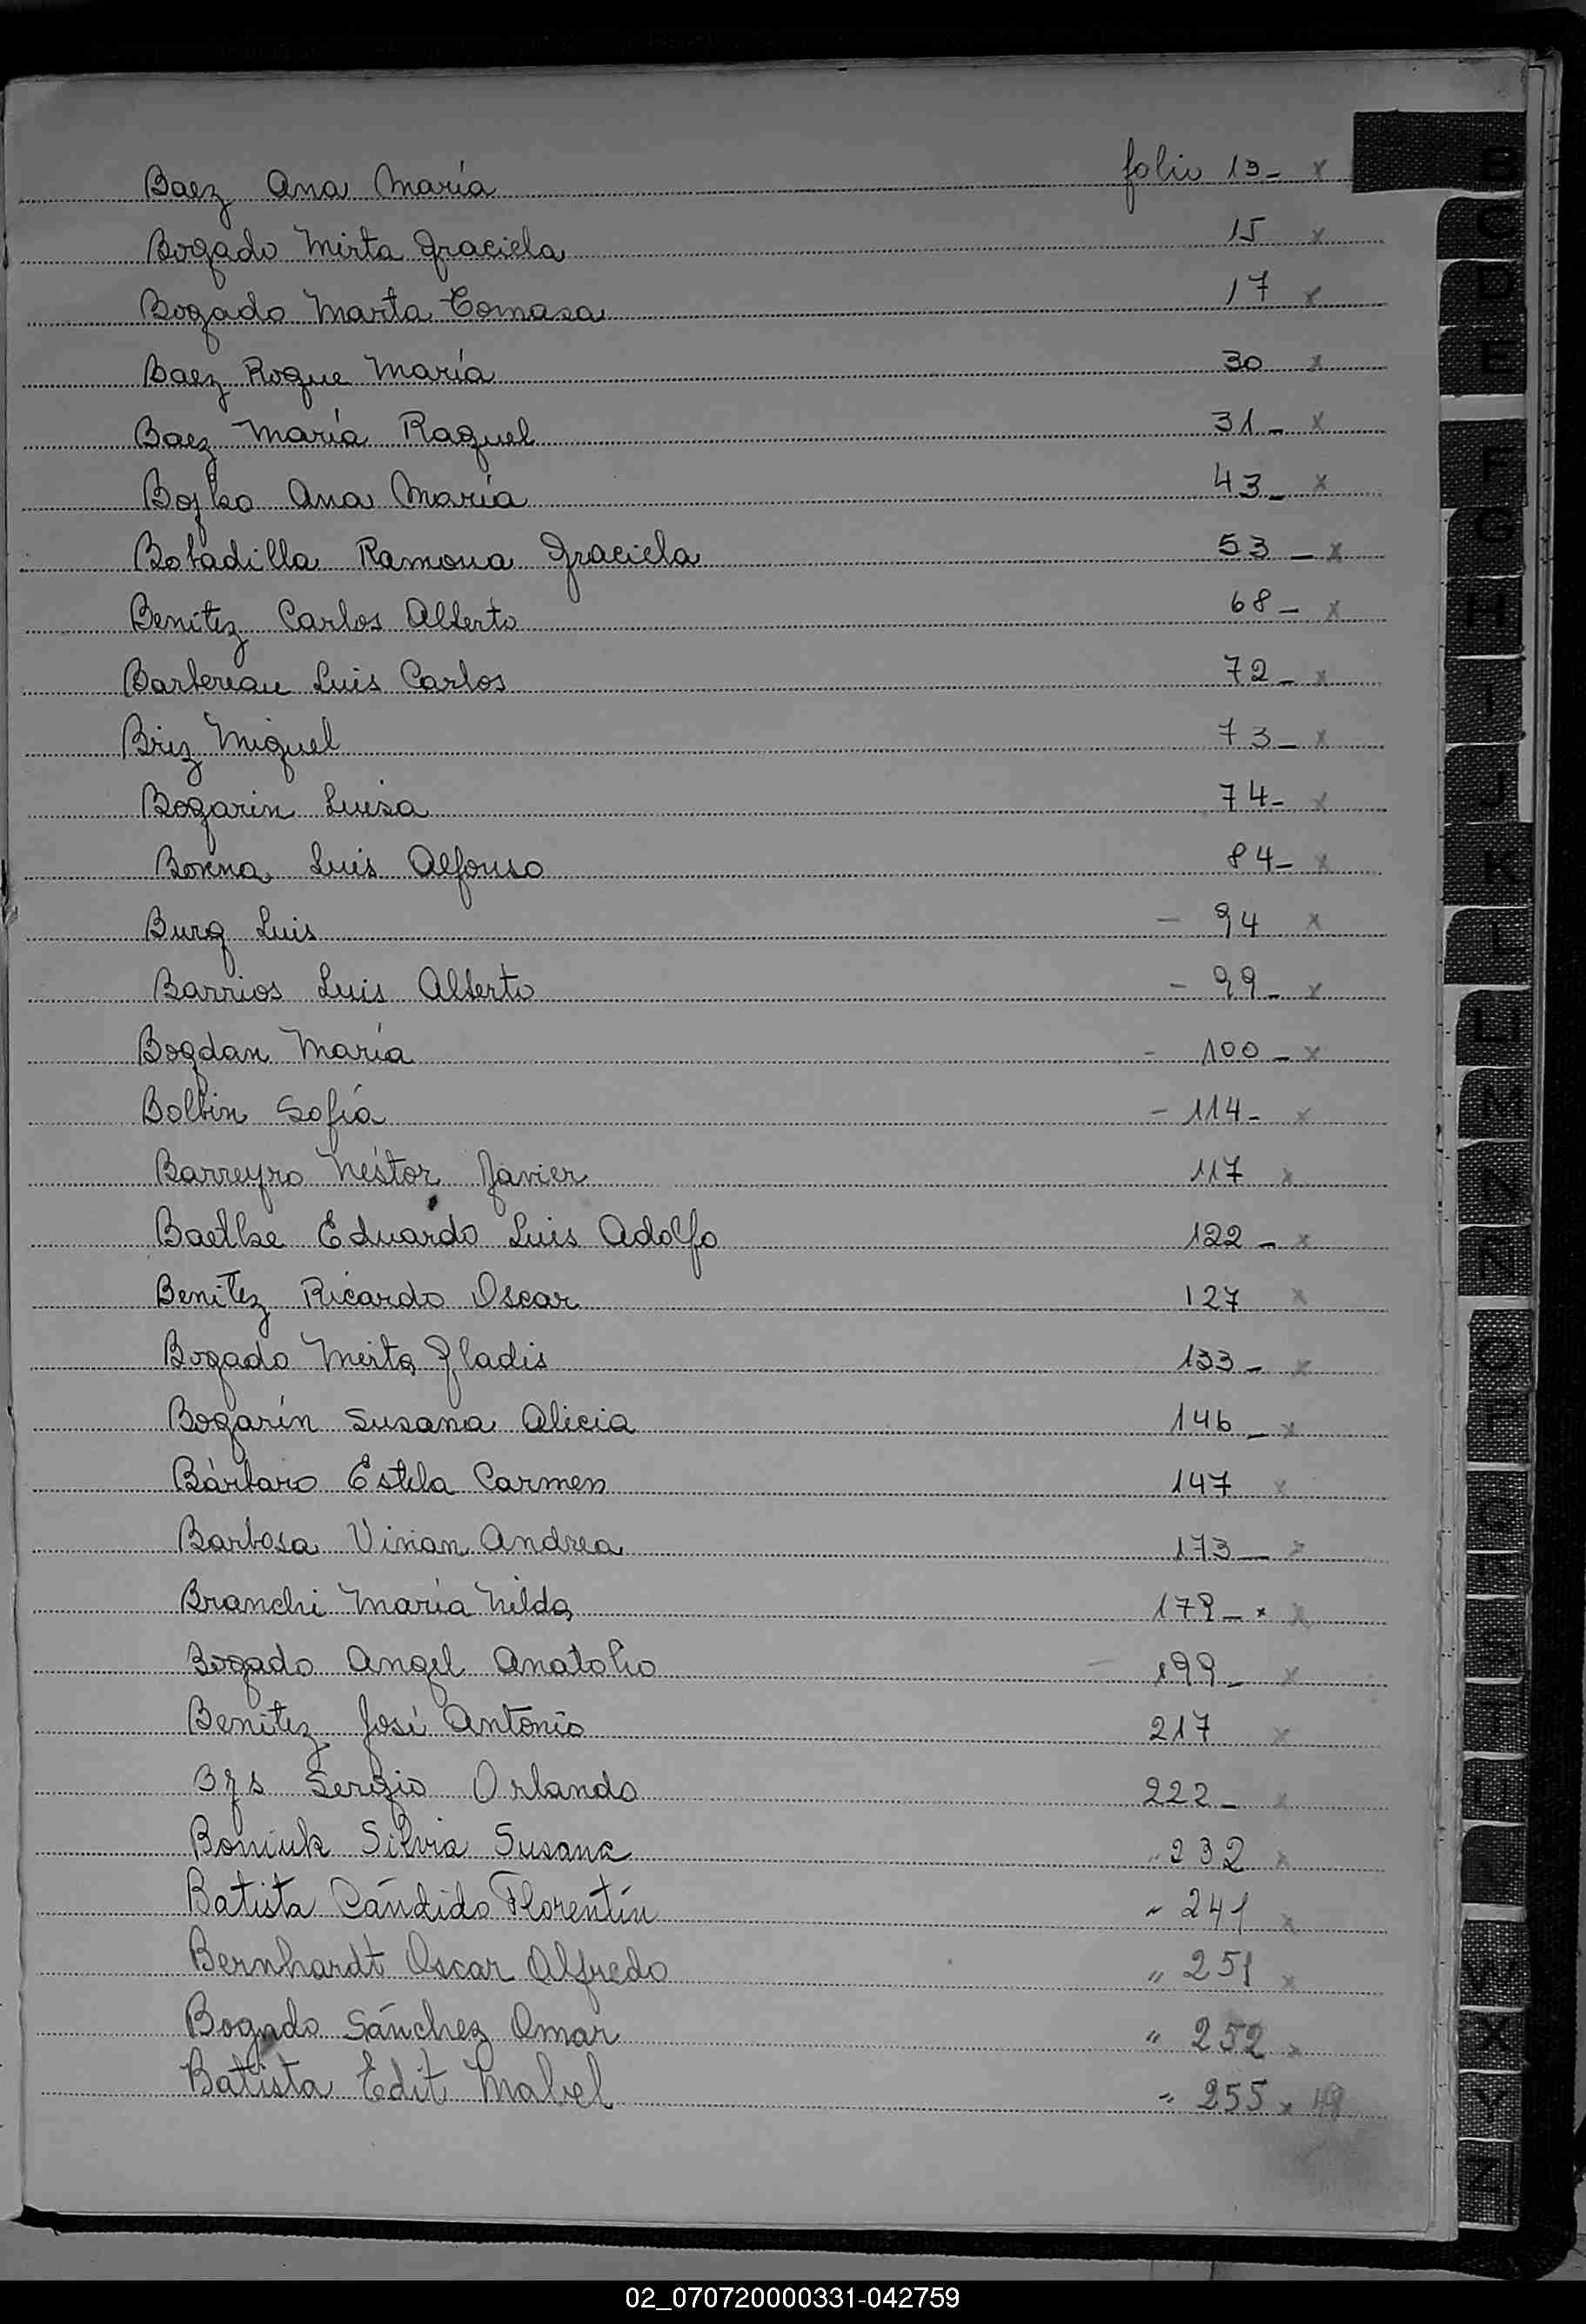 Baez Ana María folio 13 - x
Bogado Mirta Graciela 15 x
Bogado Marta Tomasa 17 x
Baez Roque María 30 x
Baez María Raquel 31 - x
Bojko Ana María 43 - x
Bobadilla Ramona Graciela 53 - x
Benítez Carlos Alberto 68 - x
Barbereau Luis Carlos 72 - x
Briz Miguel 73 - x
Bogarin Luisa 74 - x
Luis Alfonso 84 - x
Burg Luis - 94 x
Barrios Luis Alberto - 99 - x
Bogdan María - 100 - x
Bolbin Sofía - 114 - x
Barreyro Néstor Javier 117 x
Baelke Eduardo Luis Adolfo 122 - x
Benítez Ricardo Oscar 127 x
Bogado Mirta Gladis 133 - x
Bogarín Susana Alicia 146 - x
Bárbaro Estela Carmen 147 x
Barbosa Vivian Andrea 173 - x
Branchi María Nilda 179 - x x
Bogado Angel Anatolio - 199 - x
Benitez José Antonio 217 x
Sergio Orlando 222 - x
Boniuk Silvia Susana " 232 x
Batista Cándido Florentín " 241 x
Bernhardt Oscar Alfredo " 251 x
Bogado Sánchez Omar " 252 x
Batista Edit Mabel " 255 x
B
C
D
E
F
G
H
I
J
K
L
LL
M
N
Ñ
O
P
Q
R
S
T
U
V
W
X
Y
Z
02_070720000331-042759